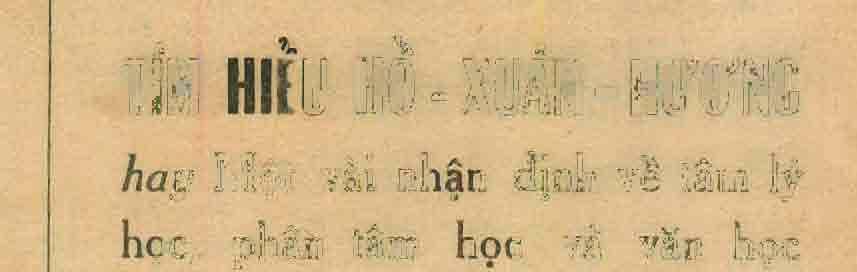 TÌM HIỂU HỒ - XUÂN - HƯƠNG
hay Một vài nhận định về tâm lý
học, phân tâm học và văn học